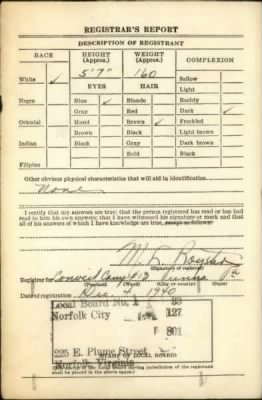 REGISTRAR'S REPORT
DESCRIPTION OF REGISTRANT
RACE HEIGHT (Approx.) WEIGHT (Approx.) COMPLEXION
White ✓ 5'7" 160 Sallow
EYES HAIR Light
Negro Blue ✓ Blonde Ruddy
Gray Red Dark ✓
Oriental Hazel Brown ✓ Freckled
Brown Black Light brown
Indian Black Gray Dark brown
Bald Black
Filipino
Other obvious physical characteristics that will aid in identification
None
I certify that my answers are true; that the person registered has read or has had
read to him his own answers; that I have witnessed his signature or mark and that
all of his answers of which I have knowledge are true, except as follows:
M. L.
(Signature of registrar)
Registrar for Camp # 13 Va
(Precinct) (Ward) (City or county) (State)
Date of registration Dec. 1940
Local Board No. 2 93
Norfolk City 127
801
225 E. Plume Street
Norfolk, Virginia
(STAMP OF LOCAL BOARD)
having jurisdiction of the registrant
shall be placed in the above space.)